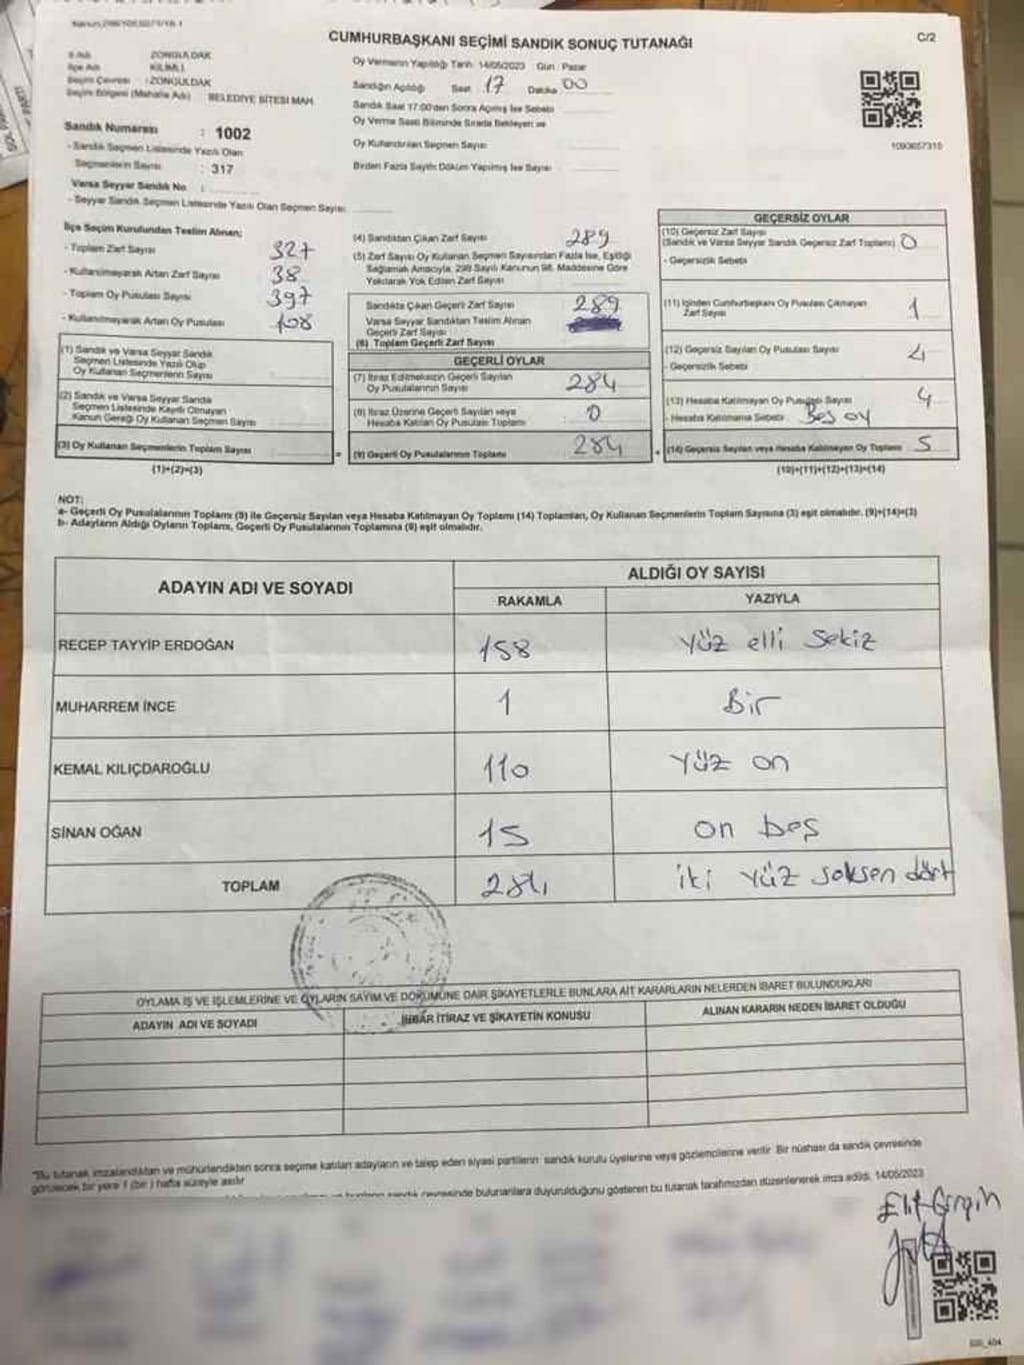 CUMHURBAŞKANI SEÇİMİ SANDIK SONUÇ TUTANAĞI
C/2
İl Adı ZONGULDAK
İlçe Adı KİLİMLİ
Seçim Çevresi : ZONGULDAK
Seçim Bölgesi (Mahalle Adı) BELEDİYE SİTESİ MAH.
Sandık Numarası : 1002
- Sandık Seçmen Listesinde Yazılı Olan
Seçmenlerin Sayısı : 317
Varsa Seyyar Sandık No :
- Seyyar Sandık Seçmen Listesinde Yazılı Olan Seçmen Sayısı
Oy Vermenin Yapıldığı Tarih 14/05/2023 Gün : Pazar
Sandığın Açıldığı Saat 17 Dakika 00
Sandık Saat 17:00'den Sonra Açılmış İse Sebebi
Oy Verme Saati Bitiminde Sırada Bekleyen ve
Oy Kullandırılan Seçmen Sayısı
Birden Fazla Sayım Döküm Yapılmış İse Sayısı
1093657315
İlçe Seçim Kurulundan Teslim Alınan;
- Toplam Zarf Sayısı 327
- Kullanılmayarak Artan Zarf Sayısı 38
- Toplam Oy Pusulası Sayısı 397
- Kullanılmayarak Artan Oy Pusulası 108
(1) Sandık ve Varsa Seyyar Sandık
Seçmen Listesinde Yazılı Olup
Oy Kullanan Seçmenlerin Sayısı
(2) Sandık ve Varsa Seyyar Sandık
Seçmen Listesinde Kayıtlı Olmayan
Kanun Gereği Oy Kullanan Seçmen Sayısı
(3) Oy Kullanan Seçmenlerin Toplam Sayısı
(1)+(2)=(3)
(4) Sandıktan Çıkan Zarf Sayısı 289
(5) Zarf Sayısı Oy Kullanan Seçmen Sayısından Fazla İse, Eşitliği
Sağlamak Amacıyla, 298 Sayılı Kanunun 98. Maddesine Göre
Yakılarak Yok Edilen Zarf Sayısı
Sandıkta Çıkan Geçerli Zarf Sayısı 289
Varsa Seyyar Sandıktan Teslim Alınan
Geçerli Zarf Sayısı
(6) Toplam Geçerli Zarf Sayısı
GEÇERLİ OYLAR
(7) İtiraz Edilmeksizin Geçerli Sayılan
Oy Pusulalarının Sayısı 284
(8) İtiraz Üzerine Geçerli Sayılan veya
Hesaba Katılan Oy Pusulası Toplamı 0
= (9) Geçerli Oy Pusulalarının Toplamı 284
GEÇERSİZ OYLAR
(10) Geçersiz Zarf Sayısı
(Sandık ve Varsa Seyyar Sandık Geçersiz Zarf Toplamı) 0
- Geçersizlik Sebebi
(11) İçinden Cumhurbaşkanı Oy Pusulası Çıkmayan
Zarf Sayısı 1
(12) Geçersiz Sayılan Oy Pusulası Sayısı 4
- Geçersizlik Sebebi
(13) Hesaba Katılmayan Oy Pusulası Sayısı 4
- Hesaba Katılmama Sebebi Beş oy
+ (14) Geçersiz Sayılan veya Hesaba Katılmayan Oy Toplamı 5
(10)+(11)+(12)+(13)=(14)
NOT:
a- Geçerli Oy Pusulalarının Toplamı (9) ile Geçersiz Sayılan veya Hesaba Katılmayan Oy Toplamı (14) Toplamları, Oy Kullanan Seçmenlerin Toplam Sayısına (3) eşit olmalıdır. (9)+(14)=(3)
b- Adayların Aldığı Oyların Toplamı, Geçerli Oy Pusulalarının Toplamına (9) eşit olmalıdır.
ADAYIN ADI VE SOYADI
ALDIĞI OY SAYISI
RAKAMLA YAZIYLA
RECEP TAYYİP ERDOĞAN 158 yüz elli sekiz
MUHARREM İNCE 1 Bir
KEMAL KILIÇDAROĞLU 110 yüz on
SİNAN OĞAN 15 on beş
TOPLAM 284 iki yüz seksen dört
OYLAMA İŞ VE İŞLEMLERİNE VE OYLARIN SAYIM VE DÖKÜMÜNE DAİR ŞİKAYETLERLE BUNLARA AİT KARARLARIN NELERDEN İBARET BULUNDUKLARI
ADAYIN ADI VE SOYADI İHBAR İTİRAZ VE ŞİKAYETİN KONUSU ALINAN KARARIN NEDEN İBARET OLDUĞU
"Bu tutanak imzalandıktan ve mühürlendikten sonra seçime katılan adayların ve talep eden siyasi partilerin sandık kurulu üyelerine veya gözlemcilerine verilir. Bir nüshası da sandık çevresinde
görülecek bir yere 1 (bir) hafta süreyle asılır
sandık çevresinde bulunanlara duyurulduğunu gösteren bu tutanak tarafımızdan düzenlenerek imza edildi. 14/05/2023
Elif Girgin